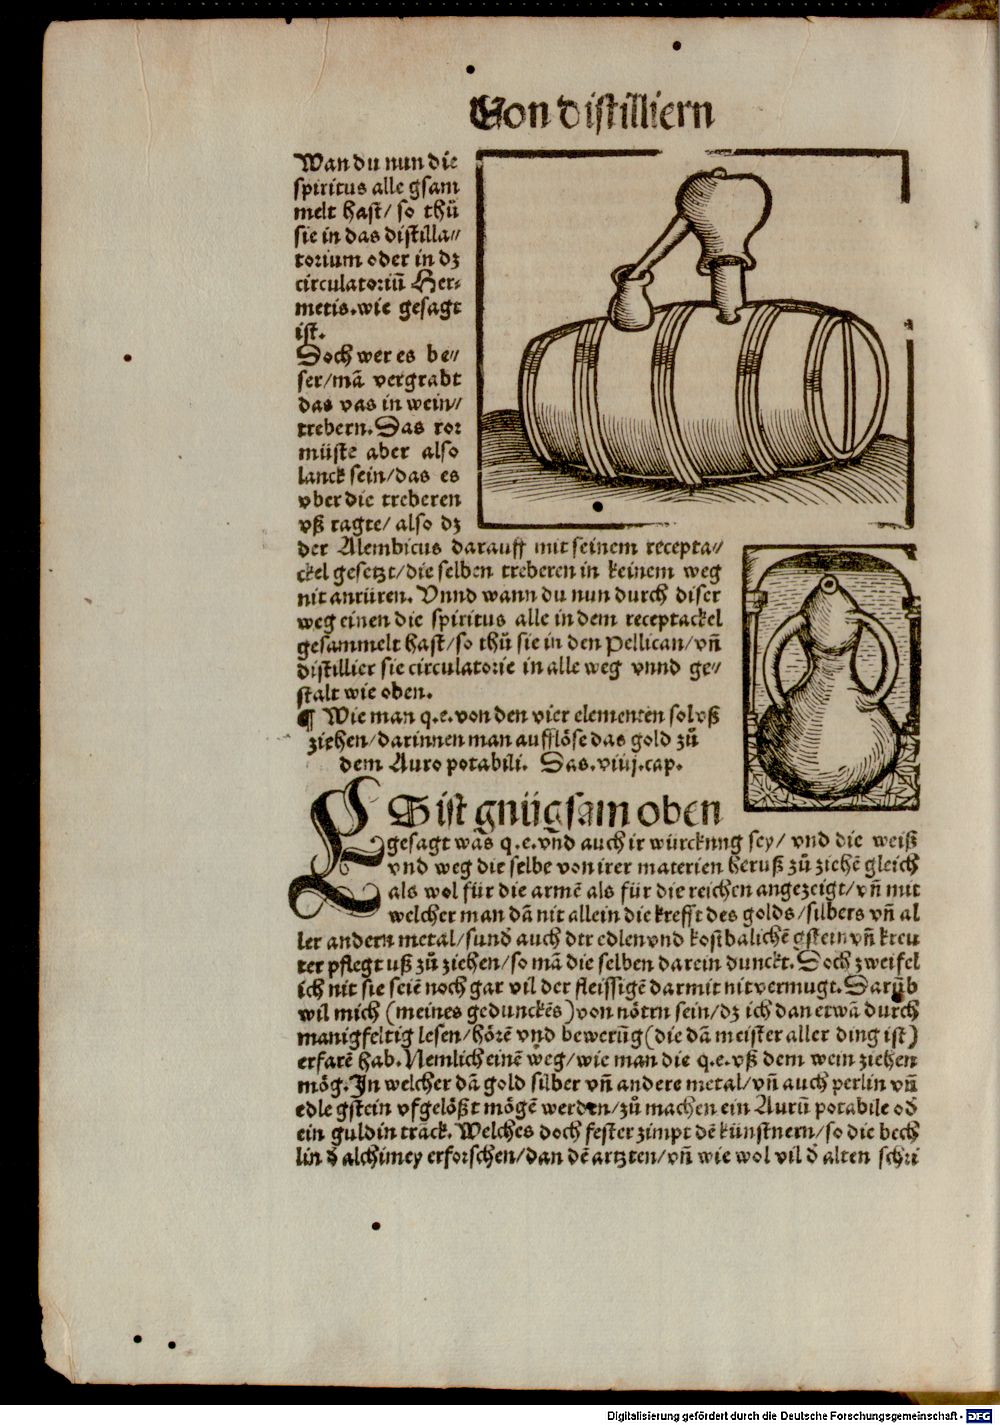 Von distilliern
Wan du nun die
spiritus alle gsam
melt hast/ so thů
sie in das distilla//
torium oder in dz
circulatoriū Her⸗
metis.wie gesagt
ist.
Doch wer es be//
ser/mā vergrabt
das vas in wein/
trebern.Das ror
müste aber also
lanck sein/das es
vber die treberen
vß ragte/ also dz
der Alembicus darauff mit seinem recepta//
ckel gesetzt/die selben treberen in keinem weg
nit anrüren. Vnnd wann du nun durch diser
weg einen die spiritus alle in dem receptackel
gesammelt hast/so thů sie in den Pellican/vn̄
distillier sie circulatorie in alle weg vnnd ge//
stalt wie oben.
¶ Wie man q.e.von den vier elementen sol vß
ziehen/darinnen man aufflöse das gold zů
dem Auro potabili. Das.viiij.cap.
ES ist gnügsam oben
gesagt was q.e.vnd auch ir würckung sey/ vnd die weiß
vnd weg die selbe von irer materien heruß zů ziehē gleich
als wol für die armē als für die reichen angezeigt/vn̄ mit
welcher man dā nit allein die krefft des golds/silbers vn̄ al
ler andern metal/sund̄ auch der edlen vnd kostbalichē gstein vn̄ kreu
ter pflegt uß zů ziehen/so mā die selben darein dunckt.Doch zweifel
ich nit sie seiē noch gar vil der fleissigē darmit nit vermugt.Darūb
wil mich (meines gedunckēs)von nötrn sein/dz ich dan etwā durch
manigfeltig lesen/hörē vnd bewerūg(die dā meister aller ding ist)
erfarē hab.Nemlich einē weg/wie man die q.e.vß dem wein ziehen
mög.In welcher dā gold silber vn̄ andere metal/vn̄ auch perlin vn̄
edle gstein vfgelößt mögē werden/zů machen ein Aurū potabile od̄
ein guldin tranck. Welches doch fester zimpt dē künstnern/so die bech
lin d̄ alchimey erforschen/dan dē artzten/vn̄ wie wol vil d̄ alten schri
Digitalisierung gefördert durch die Deutsche Forschungsgemeinschaft - DFG